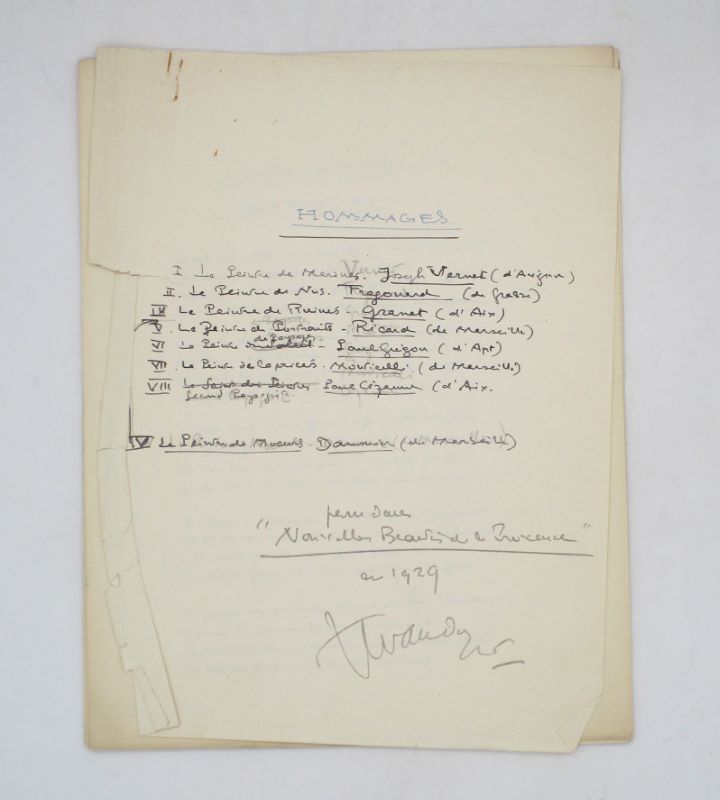 HOMMAGES
I Le Peintre de Marines. Joseph Vernet (d'Avignon)
II. Le Peintre de Nus. Fragonard (de Grasse)
Le Peintre de Ruines - Granet (d'Aix)
V. Le Peintre de Portraits - Ricard (de Marseille)
VI Le Peintre de Paysages - Paul Guigou (d'Apt)
VII. Le Peintre de Caprices. Monticelli (de Marseille)
VIII Paul Cézanne (d'Aix.
Second
IV Le Peintre de Moeurs - Daumier (de Marseille)
paru dans
"Nouvelles Beautés de la Provence"
en 1929